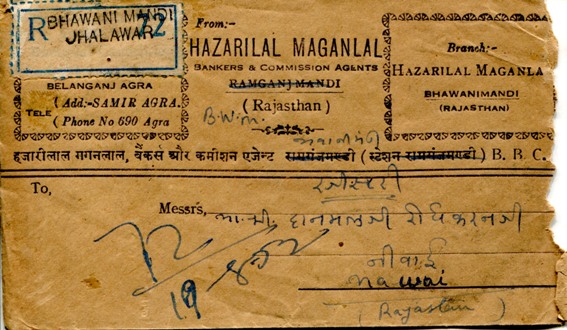 R BHAWANI MANDI
JHALAWAR 22
BELANGANJ AGRA
TELE (Add:-SAMIR AGRA.
(Phone No 690 Agra
From:-
HAZARILAL MAGANLAL
BANKERS & COMMISSION AGENTS
RAMGANJMANDI
(Rajasthan)
B.W.M.
Branch:-
HAZARILAL MAGANLA
BHAWANIMANDI
(RAJASTHAN)
भवानीमंडी
हजारीलाल मगनलाल, बैंकर्स और कमीशन एजेन्ट रामगंजमण्डी (स्टेशन रामगंजमण्डी) B. B. C.
To,
रजीस्टरी
Messrs,
नीवाई
Nawai
(Rajasthan)
19